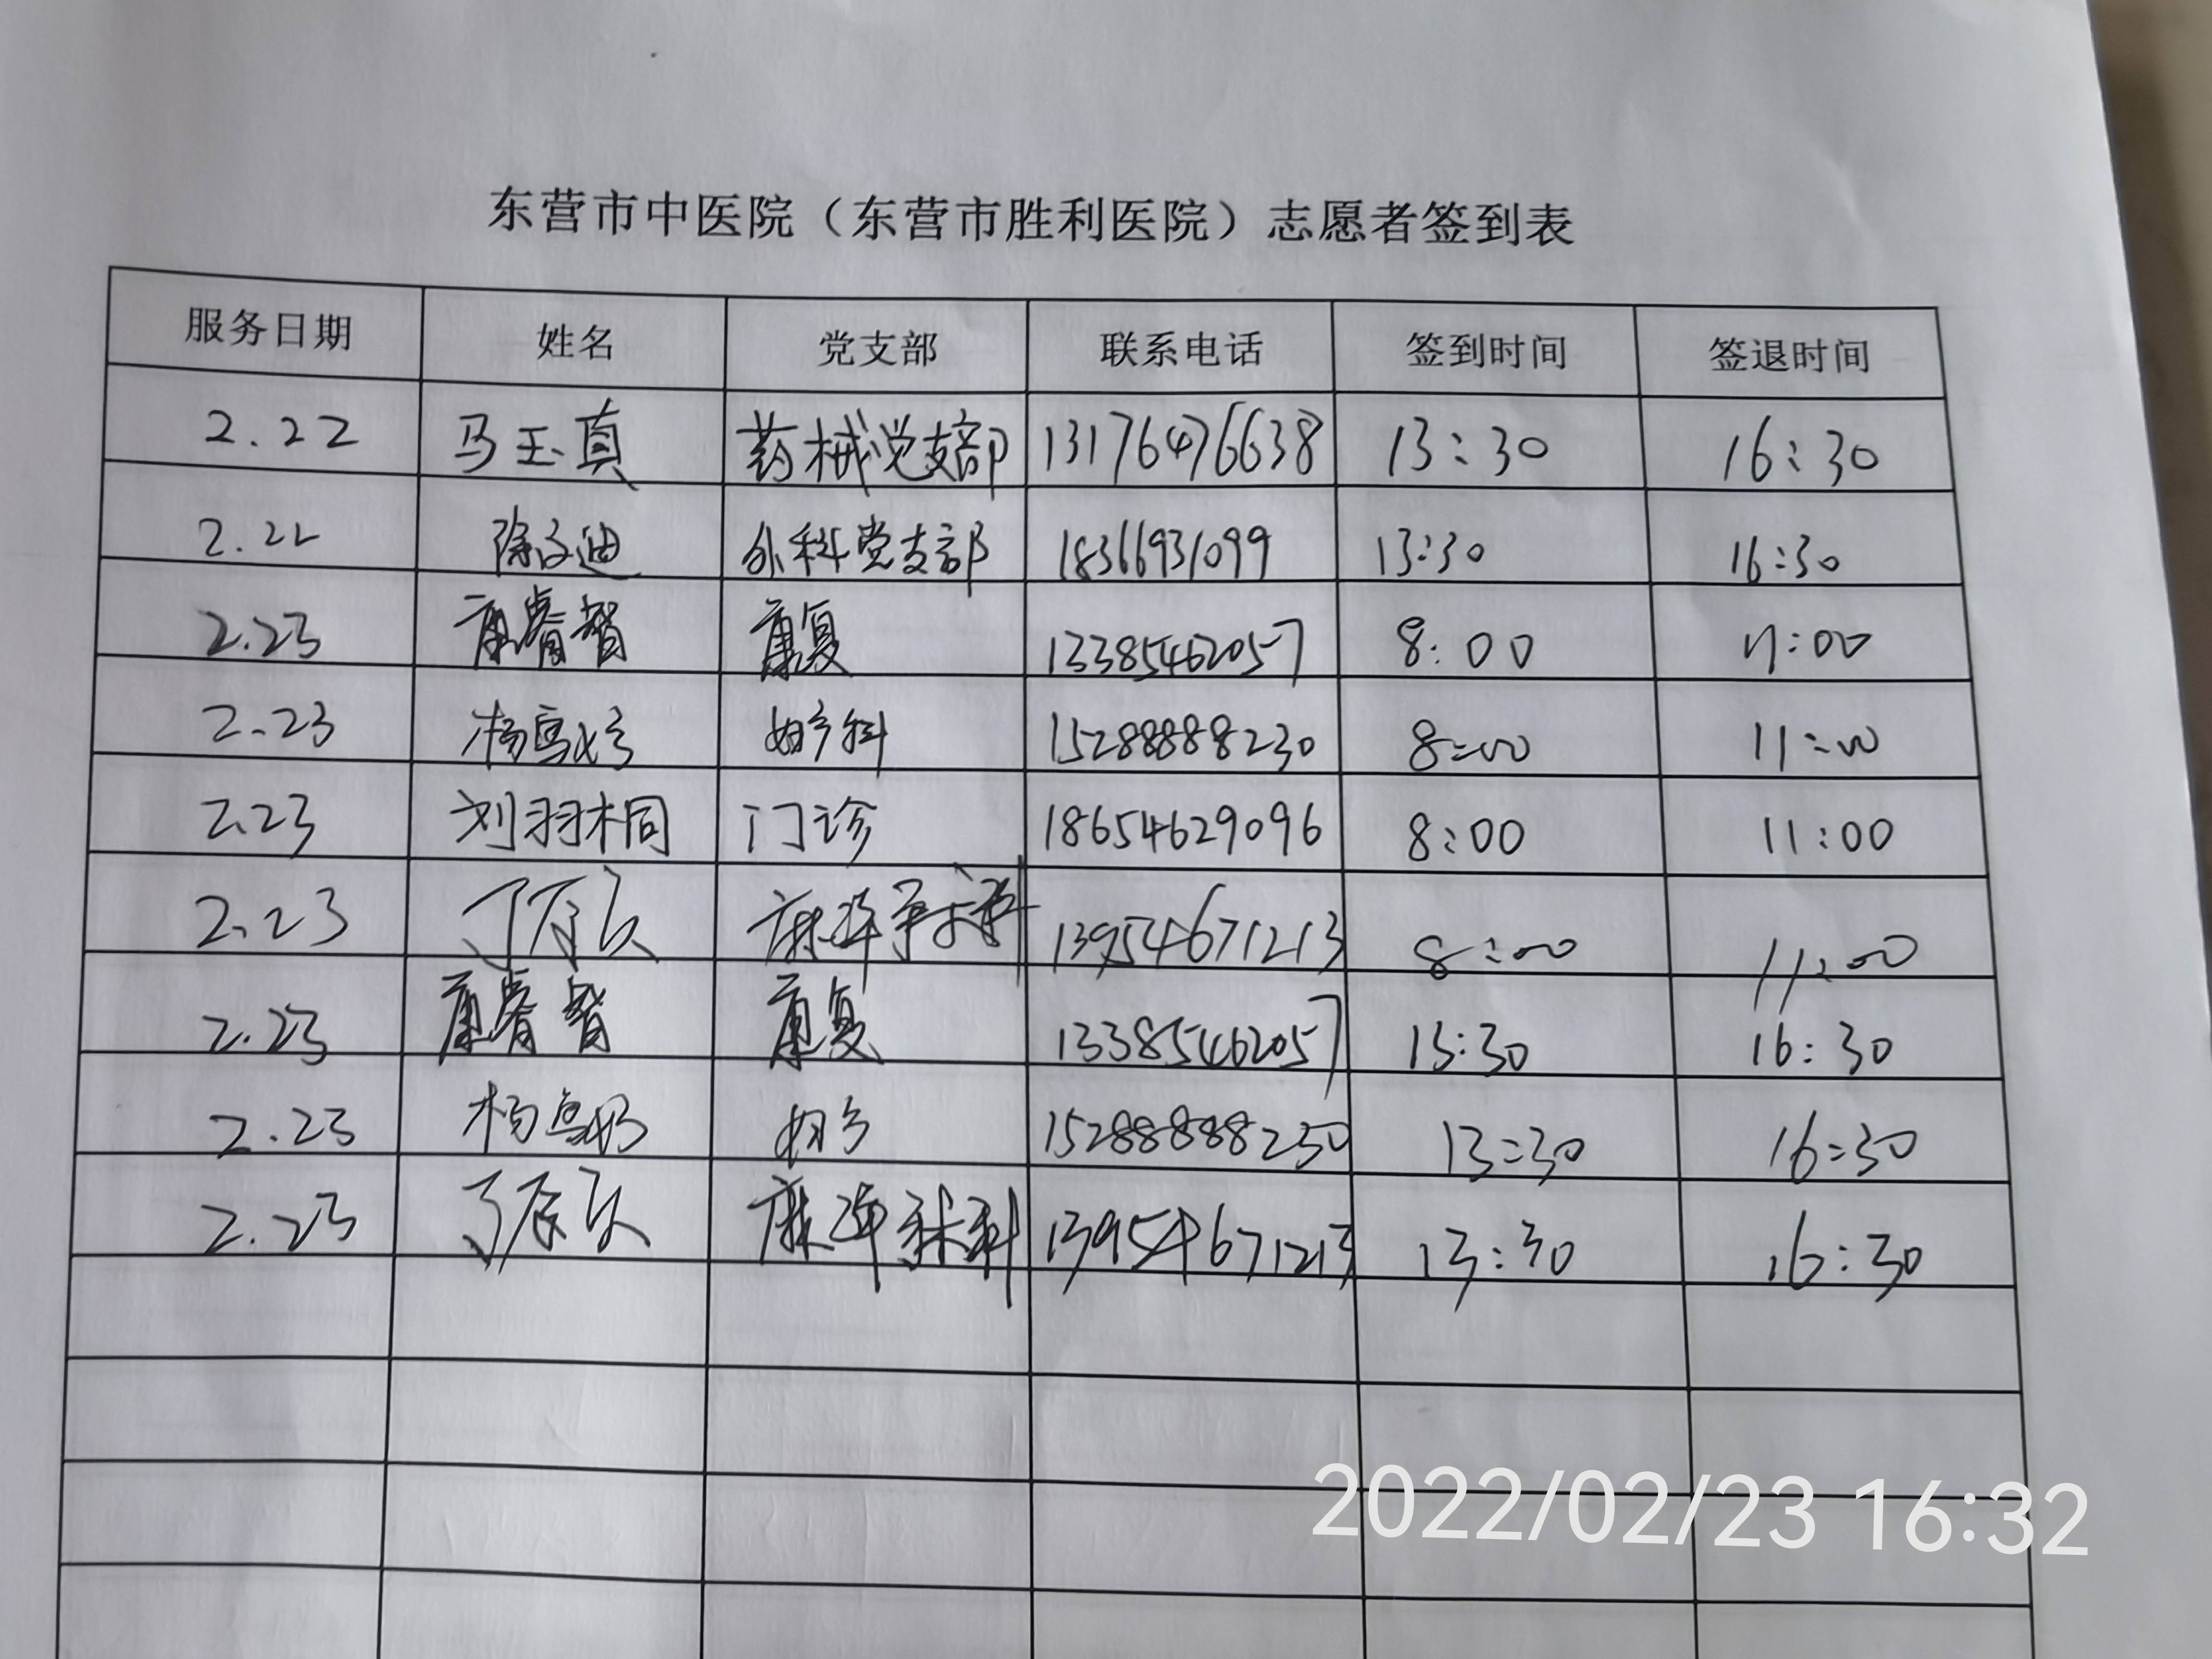 东营市中医院（东营市胜利医院）志愿者签到表
服务日期 姓名 党支部 联系电话 签到时间 签退时间
2.22 马玉真 药械党支部 13176476638 13:30 16:30
2.22 徐文迪 外科党支部 18366931099 13:30 16:30
2.23 康睿智 康复 13385462057 8:00 11:00
2.23 杨 妇产科 15288888230 8:00 11:00
2.23 刘羽桐 门诊 18654629096 8:00 11:00
2.23 麻醉手术科 13954671213 8:00 11:00
2.23 康睿智 康复 13385462057 13:30 16:30
2.23 杨 妇产 15288888230 13:30 16:30
2.23 麻醉手术科 13954671213 13:30 16:30
2022/02/23 16:32